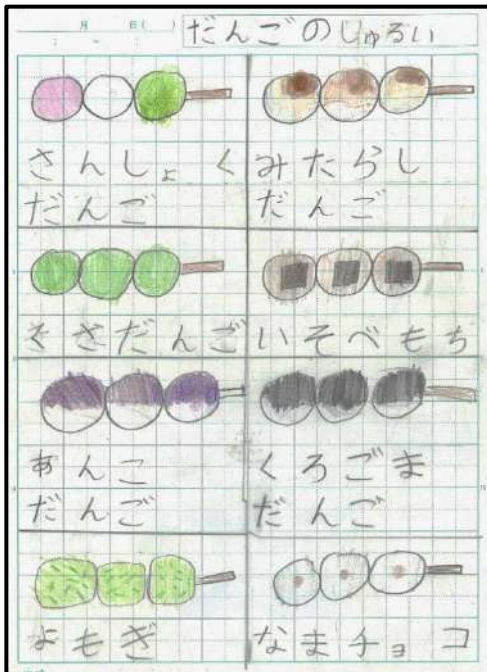 月 日( )
だんごのしゅるい
さんしょく
だんご
みたらし
だんご
ささだんご
いそべもち
あんこ
だんご
くろごま
だんご
よもぎ
なまチョコ